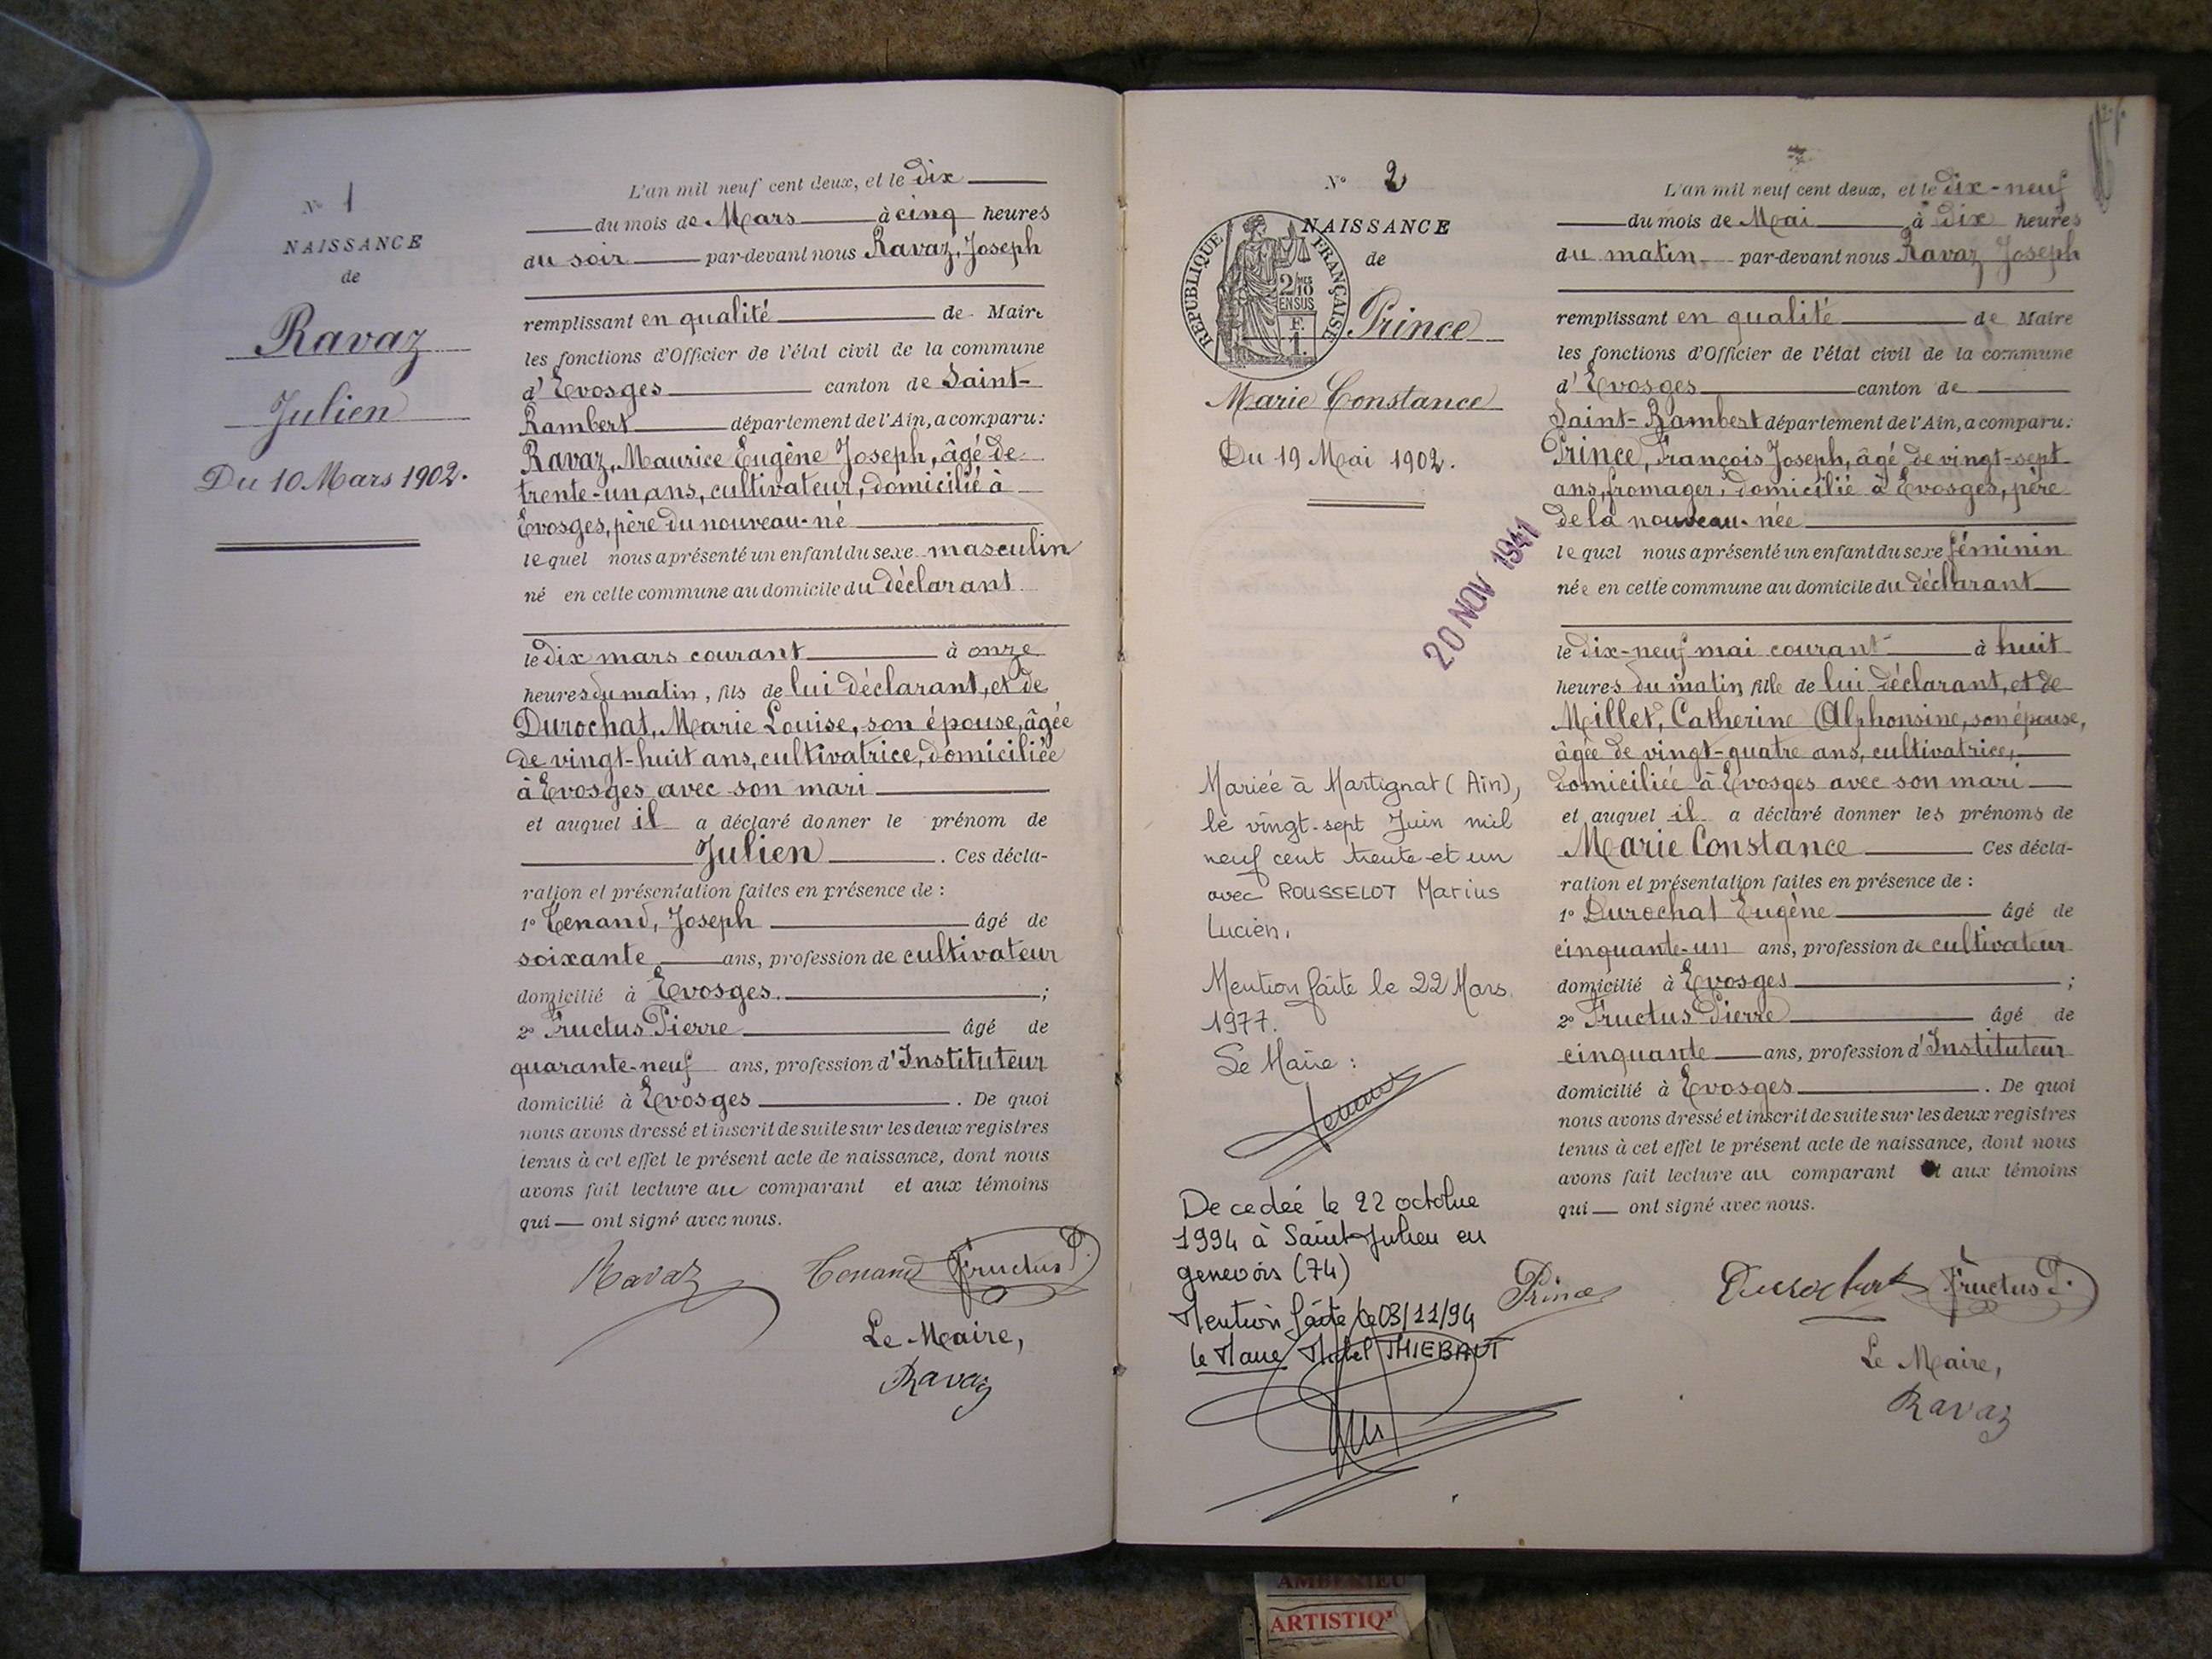 N° 1
NAISSANCE
de
Ravaz
Julien
Du 10 Mars 1902.
L'an mil neuf cent deux, et le dix
du mois de Mars à cinq heures
du soir par-devant nous Ravaz, Joseph
remplissant en qualité de Maire
les fonctions d'Officier de l'état civil de la commune
d'Evosges canton de Saint-
Rambert département de l'Ain, a comparu:
Ravaz, Maurice Eugène Joseph, âgé de
trente-un ans, cultivateur, domicilié à
Evosges, père du nouveau-né
lequel nous a présenté un enfant du sexe masculin
né en cette commune au domicile du déclarant
le dix mars courant à onze
heures du matin, fils de lui déclarant, et de
Durochat, Marie Louise, son épouse, âgée
de vingt-huit ans, cultivatrice, domiciliée
à Evosges avec son mari
et auquel il a déclaré donner le prénom de
Julien. Ces décla-
ration et présentation faites en présence de :
1° Tenand, Joseph âgé de
soixante ans, profession de cultivateur
domicilié à Evosges. ;
2° Fructus Pierre âgé de
quarante-neuf ans, profession d'Instituteur
domicilié à Evosges. De quoi
nous avons dressé et inscrit de suite sur les deux registres
tenus à cet effet le présent acte de naissance, dont nous
avons fait lecture au comparant et aux témoins
qui ont signé avec nous.
Ravaz Tenand Fructus P.
Le Maire,
Ravaz
N° 2
NAISSANCE
de
RÉPUBLIQUE FRANÇAISE
2/10 EN SUS
F. 1.
Prince
Marie Constance
Du 19 Mai 1902.
20 NOV 1941
Mariée à Martignat (Ain),
le vingt-sept Juin mil
neuf cent trente-et un
avec ROUSSELOT Marius
Lucien.
Mention faite le 22 Mars
1977.
Le Maire :
Decedée le 22 octobre
1994 à Saint-Julien en
genevois (74)
Mention faite le 03/11/94
le Maire Michel THIEBAUT
L'an mil neuf cent deux, et le dix-neuf
du mois de Mai à dix heures
du matin par-devant nous Ravaz Joseph
remplissant en qualité de Maire
les fonctions d'Officier de l'état civil de la commune
d'Evosges canton de
Saint-Rambert département de l'Ain, a comparu:
Prince, François Joseph, âgé de vingt-sept
ans, fromager, domicilié à Evosges, père
de la nouveau-née
lequel nous a présenté un enfant du sexe féminin
née en cette commune au domicile du déclarant
le dix-neuf mai courant à huit
heures du matin fille de lui déclarant, et de
Millet, Catherine Alphonsine, son épouse,
âgée de vingt-quatre ans, cultivatrice,
domiciliée à Evosges avec son mari
et auquel il a déclaré donner les prénoms de
Marie Constance Ces décla-
ration et présentation faites en présence de :
1° Durochat Eugène âgé de
cinquante-un ans, profession de cultivateur
domicilié à Evosges ;
2° Fructus Pierre âgé de
cinquante ans, profession d'Instituteur
domicilié à Evosges. De quoi
nous avons dressé et inscrit de suite sur les deux registres
tenus à cet effet le présent acte de naissance, dont nous
avons fait lecture au comparant et aux témoins
qui ont signé avec nous.
Prince Durochat Fructus P.
Le Maire,
Ravaz
AMBERIEU
ARTISTIQ